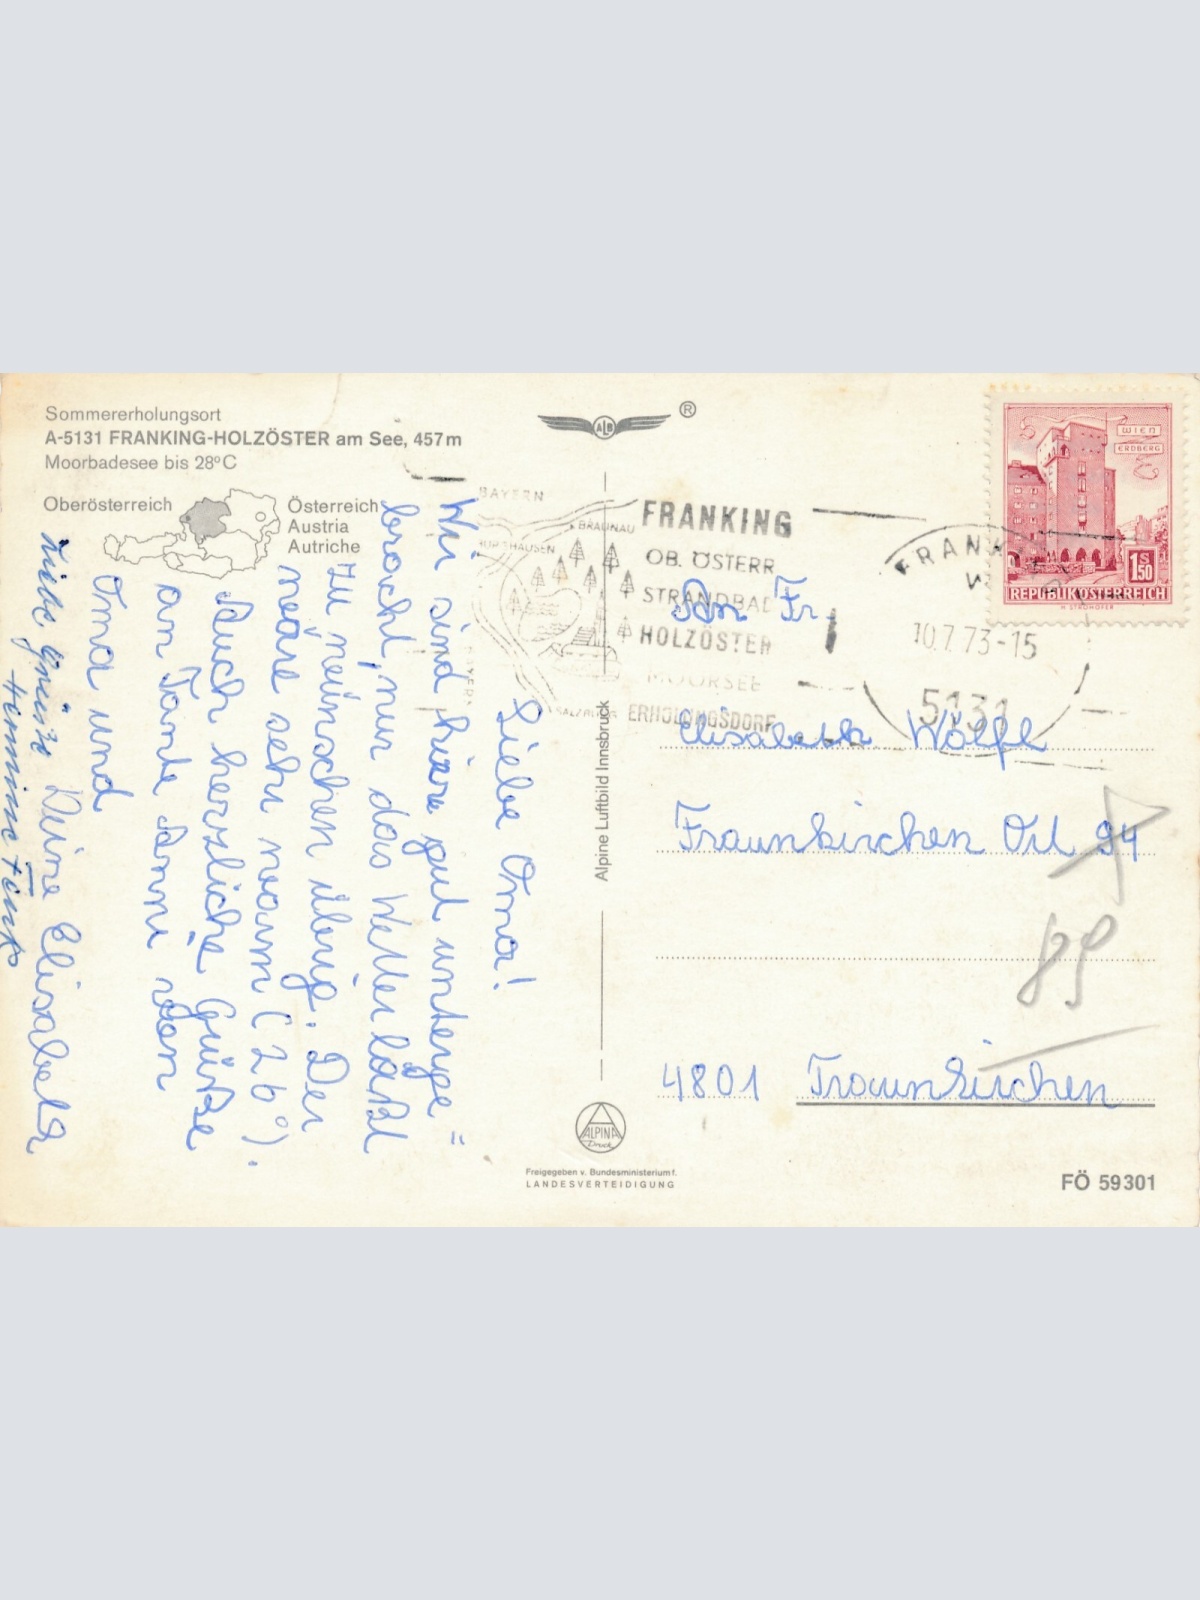 Sommererholungsort
A-5131 FRANKING-HOLZÖSTER am See, 457m
Moorbadesee bis 28°C
Oberösterreich
Österreich
Austria
Autriche
ALB
®
Liebe Oma!
Wir sind hier gut unterge"
bracht, nur das Wetter läßt
zu wünschen übrig. Der
wäre sehr warm (26°).
Auch herzliche Grüße
an Tante Anni von
Oma und
Deine Elisabeth
Viele Grüße
Alpine Luftbild Innsbruck
BAYERN
BRAUNAU
BURGHAUSEN
BAYERN
SALZBURG
FRANKING
OB. ÖSTERR
STRANDBAD
HOLZÖSTER
MOORSEE
ERHOLUNGSDORF
10.7.73-15
5131
WIEN
ERDBERG
1S50
REPUBLIK ÖSTERREICH
H. STROHOFER
An Fr.
Elisabeth Wölfl
Traunkirchen Ort 94
89
4801 Traunkirchen
ALPINA
Druck
Freigegeben v. Bundesministerium f.
LANDESVERTEIDIGUNG
FÖ 59301